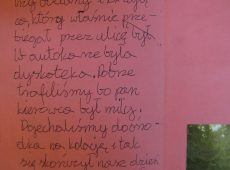 ca, który właśnie prze-
biegał przez ulicę był
W autokarze była
dyskoteka. Potne
trafiliśmy bo pan
kierowca był miły.
Dojechaliśmy do ośro-
dka na kolację i tak
się skończył nasz dzień